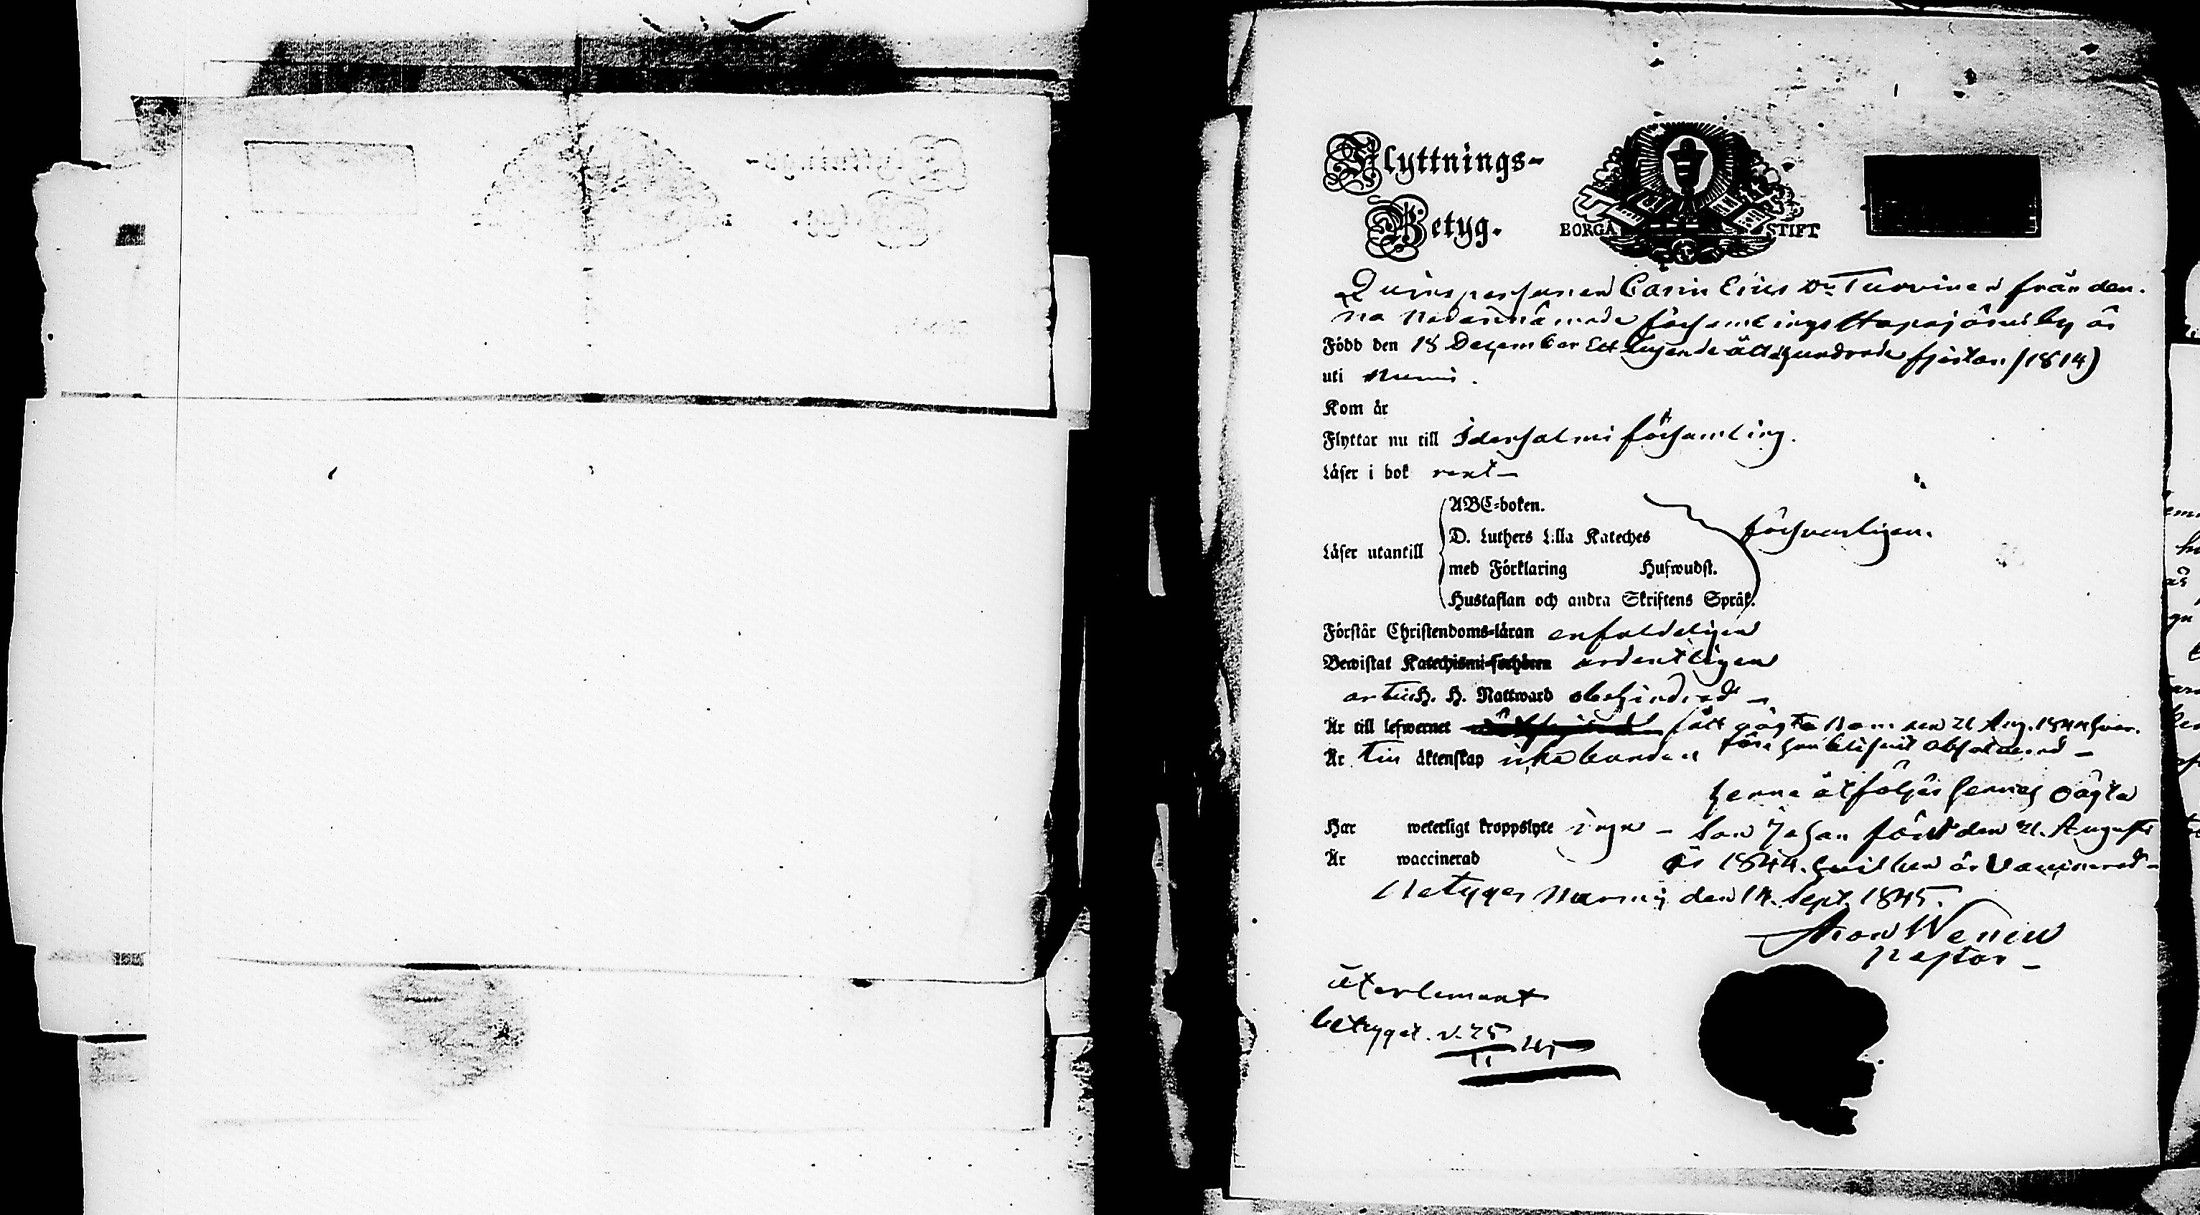 Flyttnings-
Betyg.
BORGÅ STIFT
Qvinspersonen Carin Eriks Dr Turvinen från den-
na nedannämnde församlings Haapajärviby är
Född den 18 December Ett tusende åttahundrade fjorton (1814)
uti Nurmi.
Kom år
Flyttar nu till Idensalmi församling.
Läser i bok rent
Läser utantill
ABC-boken.
D. Luthers Lilla Kateches
med Förklaring Hufwudst.
Hustaflan och andra Skriftens Språk.
försvarligen.
Förstår Christendoms-läran enfaldeligen
Bewistat Katechismi-förhören ordentligen
H. H. Nattward obehindrad
Är till lefwernet fått oägta Barn den 21 Aug. 1844 hvar-
före hon blifvit absolverad
Är till äktenskap icke bunden
henne åtföljer hennes oägta
Har weterligt kroppslyte inga
Son Johan född den 21. Augusti
Är waccinerad
år 1844. hvilken är vaccinerad
Betygas Nurmis den 14. Sept. 1845.
Aron Wenell
Pastor
återlemnat
betyget. d. 25/11 45